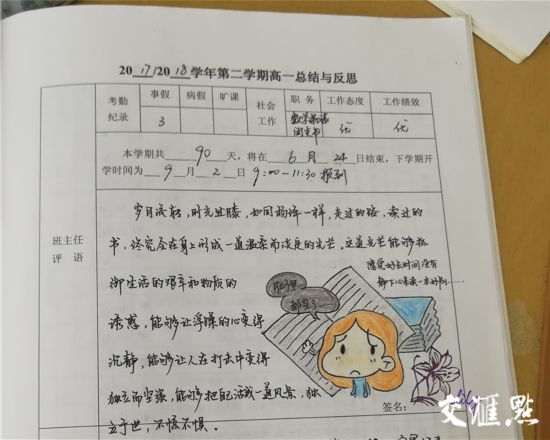 2017/2018学年第二学期高一总结与反思
考勤纪录 事假 病假 旷课 社会工作 职务 工作态度 工作绩效
3 数学课代 团支书 优 优
本学期共 90 天，将在 6 月 24 日结束，下学期开
学时间为 9 月 2 日 9:00-11:30 报到
班主任
评语
岁月流转，时光过隙，如同杨绛一样，走过的路，读过的
书，终究会在身上形成一道温柔而淡定的光芒，这道光芒能够抵
御生活的艰辛和物质的
诱惑，能够让浮躁的心变得
沉静，能够让人在打击中变得
独立而坚强，能够把自己活成一道风景，独
立于世，不惊不惧。
感觉好长时间没有
静下心来读一本好书……
脑子里……
都空了……
签名：
交汇点